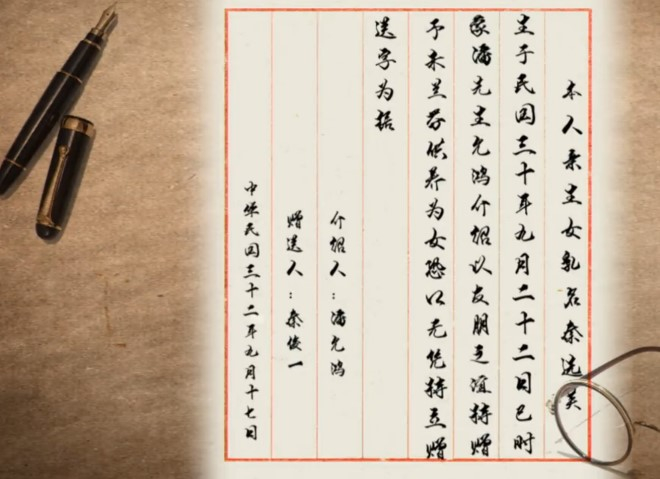 本人亲生女乳名秦选
生于民国三十年九月二十二日巳时
蒙先生允鸿介绍以友朋之谊特赠
予朱兰供养为女恐口无凭特立赠
送字为据
介绍人：允鸿
赠送人：秦俊一
中华民国三十二年九月十七日